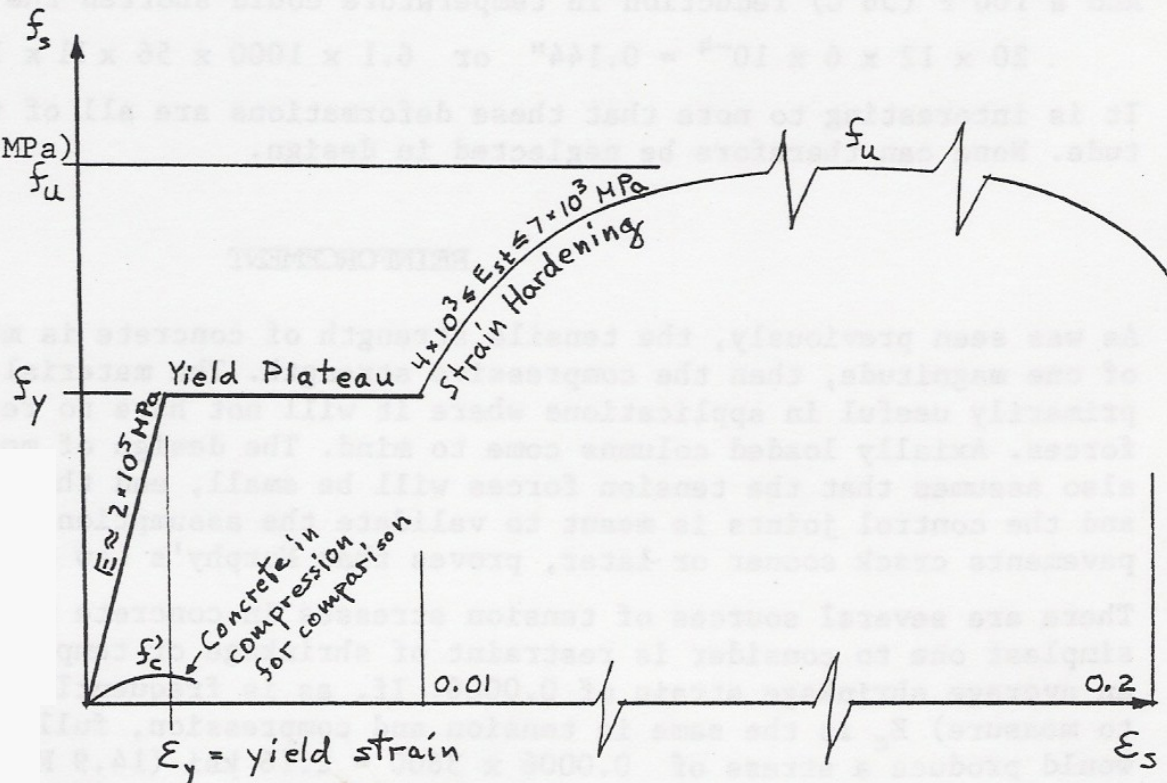 f_s
MPa)
f_u
f_u
4×10³ ≤ E_st ≤ 7×10³ MPa
Strain Hardening
f_y
Yield Plateau
E≈2×10⁵ MPa
f'_c
Concrete in
compression
for comparison
0.01
0.2
ε_y = yield strain
ε_s